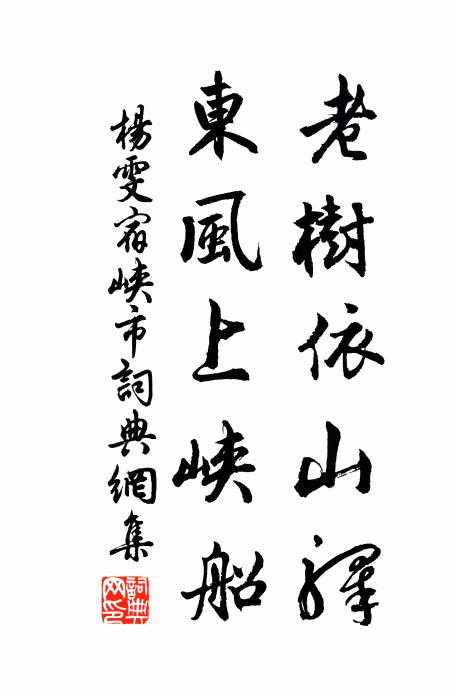 老樹依山驛
東風上峽船
楊雯宿峽市詞典網集
詞典網印